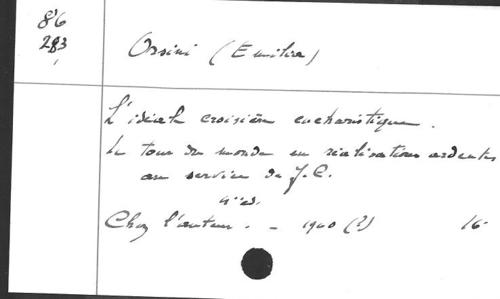 86
283
Orsini (Emilia)
L'idéale croisière eucharistique.
Le tour du monde en réalisations ardentes
au service de J.C.
4e éd.
Chez l'auteur. - 1940 (?) 16